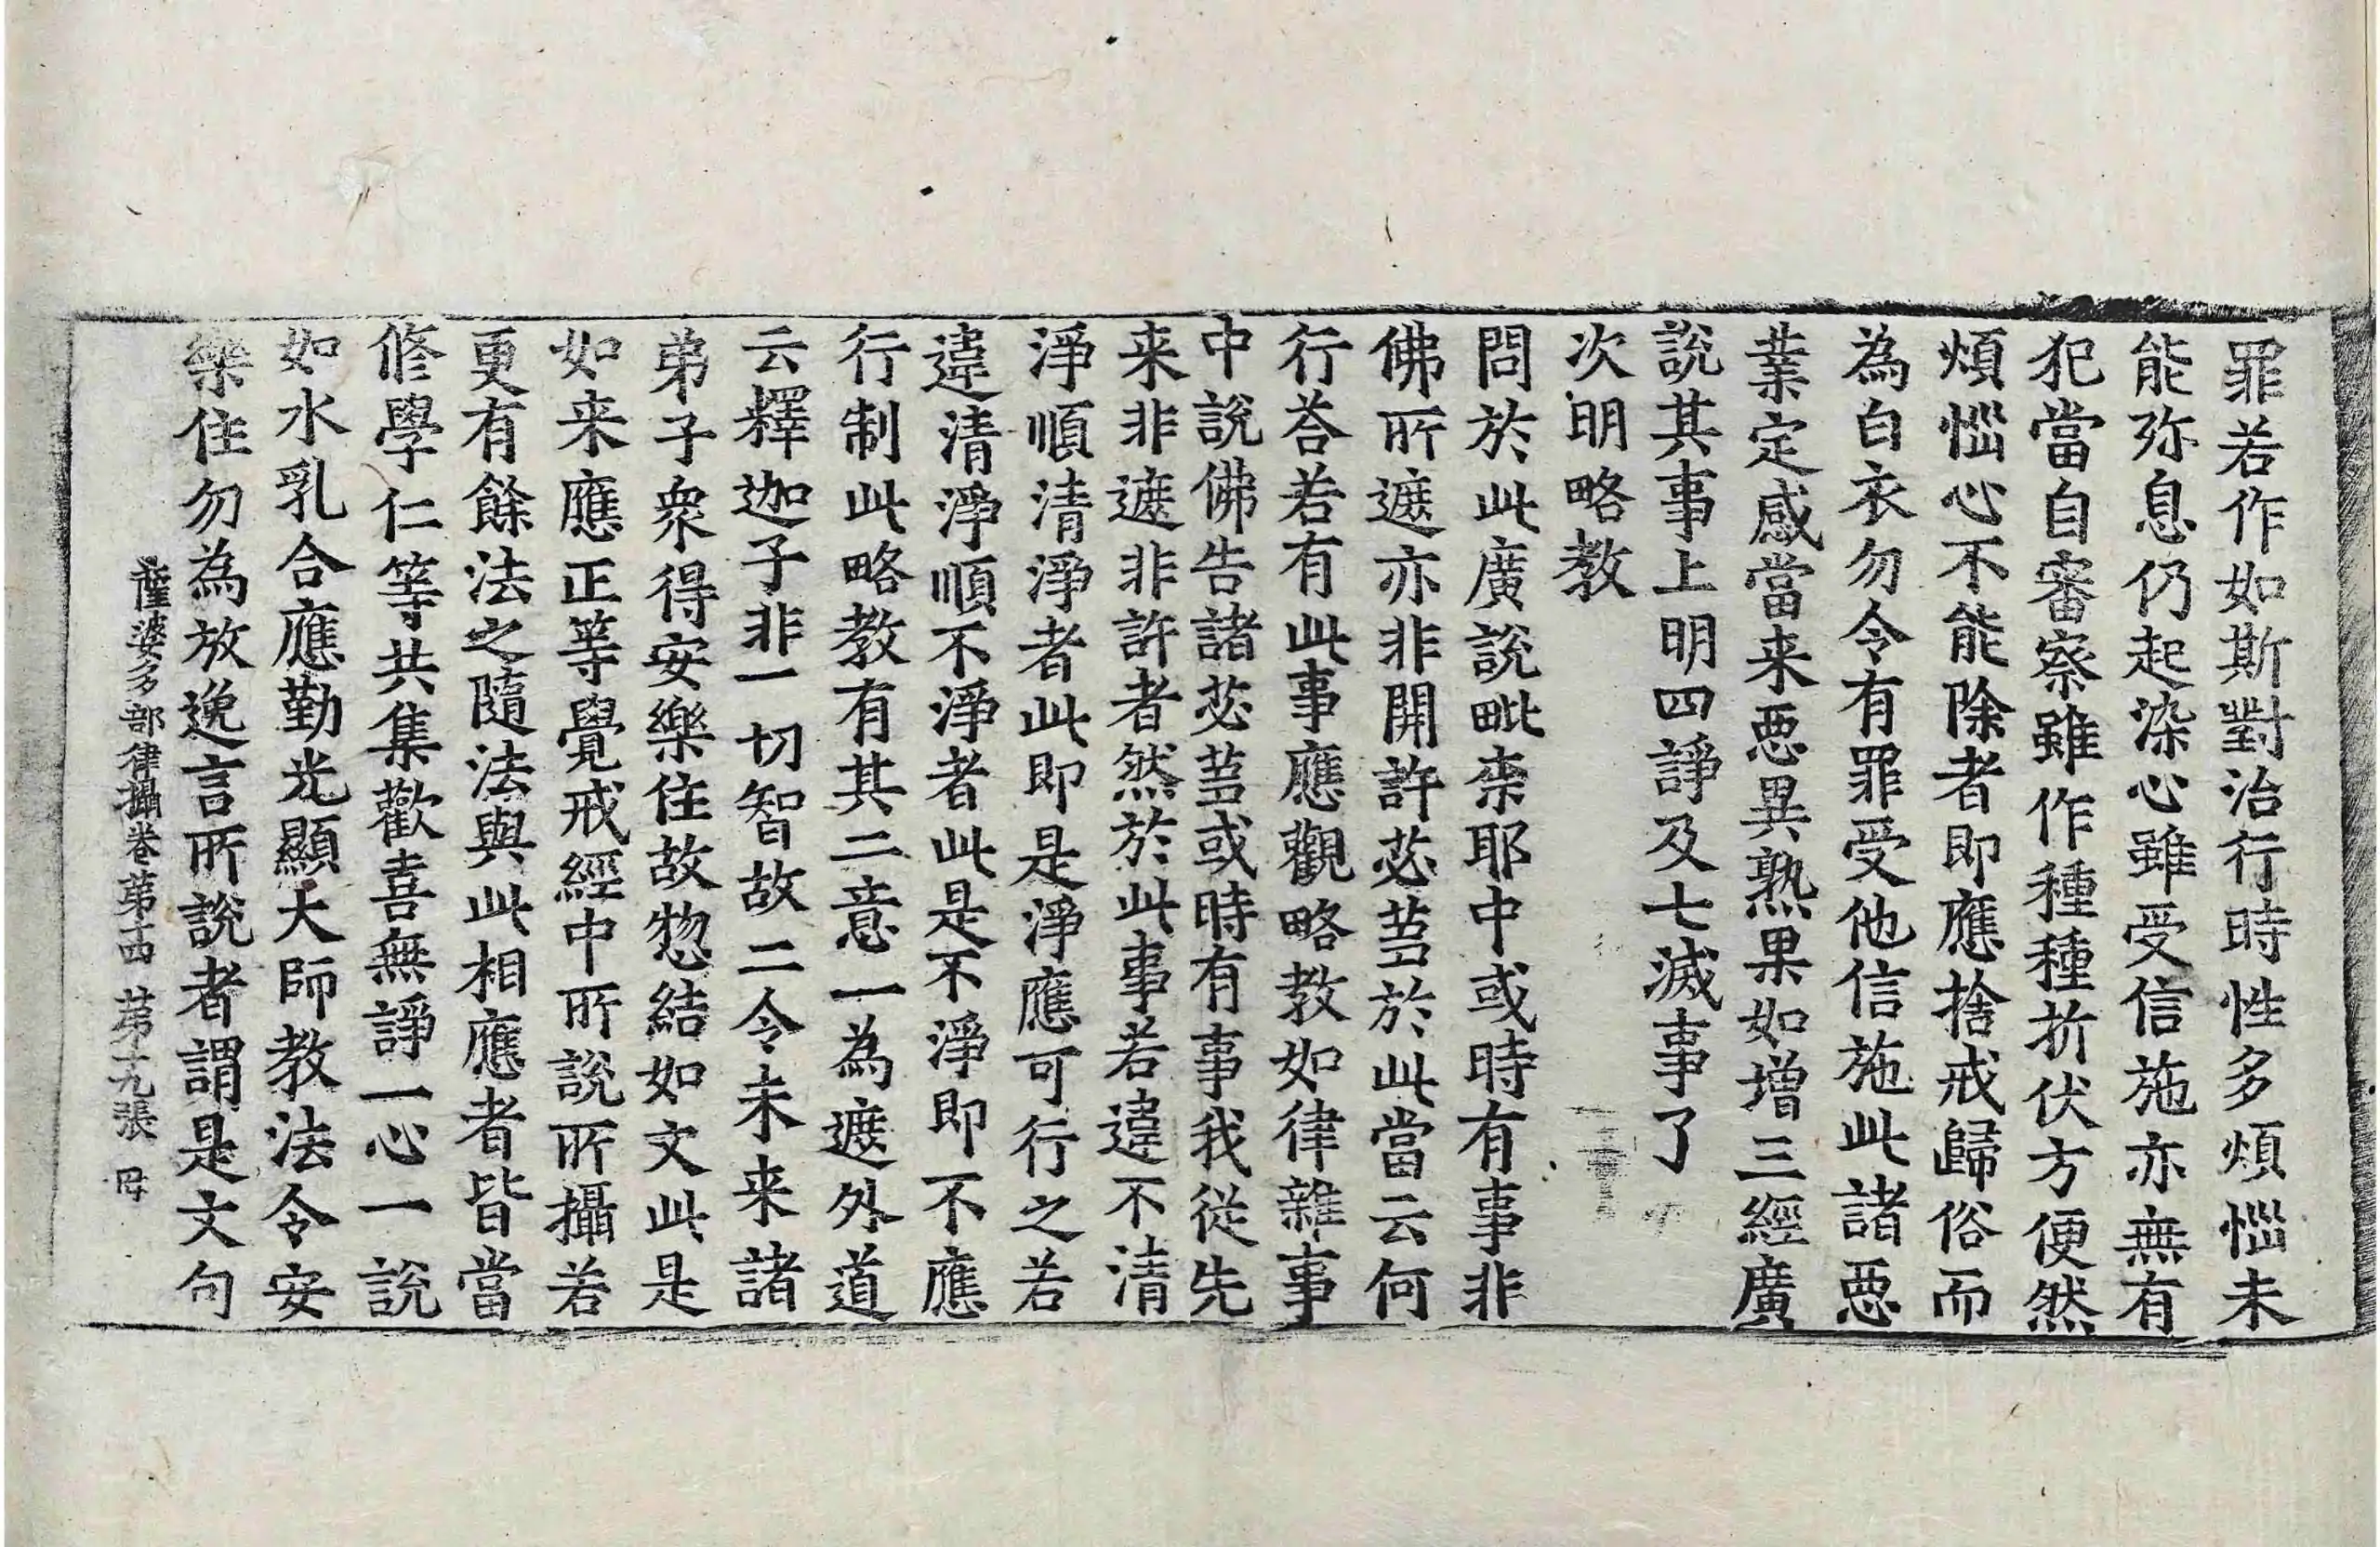 罪若作如斯對治行時性多煩惱未
能弥息仍起染心雖受信施亦無有
犯當自審察雖作種種折伏方便然
煩惱心不能除者即應捨戒歸俗而
為白衣勿令有罪受他信施此諸惡
業定感當来惡異熟果如增三經廣
說其事上明四諍及七滅事了
次明略教
問於此廣說毗柰耶中或時有事非
佛所遮亦非開許苾芻於此當云何
行荅若有此事應觀略教如律雜事
中說佛告諸苾芻或時有事我從先
来非遮非許者然於此事若違不清
淨順清淨者此即是淨應可行之若
違清淨順不淨者此是不淨即不應
行制此略教有其二意一為遮外道
云釋迦子非一切智故二令未来諸
弟子衆得安樂住故惣結如文此是
如来應正等覺戒經中所說所攝若
更有餘法之隨法與此相應者皆當
修學仁等共集歡喜無諍一心一說
如水乳合應勤光顯大師教法令安
樂住勿為放逸言所說者謂是文句
薩婆多部律攝卷第十四 第十九張 母